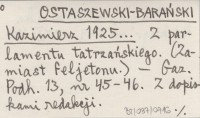 OSTASZEWSKI-BARAŃSKI
Kazimierz 1925... Z par-
lamentu tatrzańskiego. (Za-
miast feljetonu.) — Gaz.
Podh. 13, nr 45-46. Z dopis-
kami redakcji.